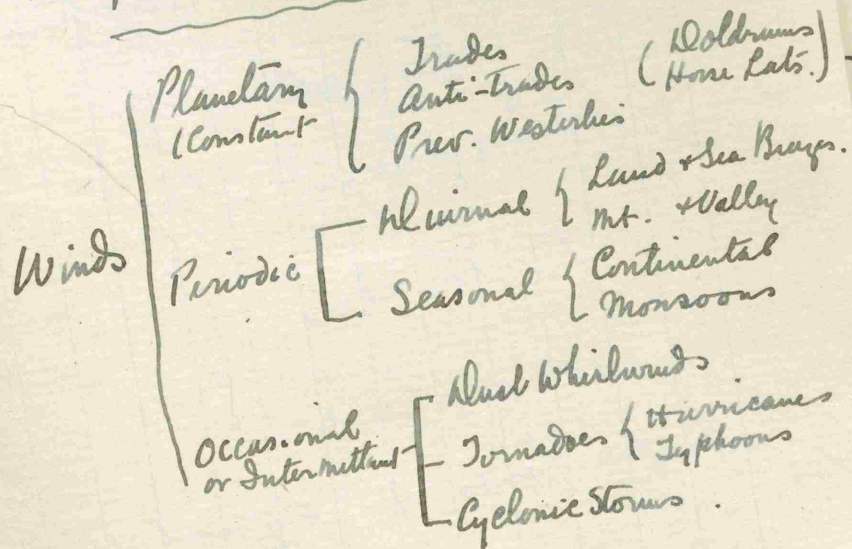 Winds
Planetary
(Constant
Trades
Anti-Trades
Prev. Westerlies
(Doldrums
Horse Lats.)
Periodic
Diurnal
Land & Sea Breezes.
Mt. & Valley
Seasonal
Continental
Monsoons
Occasional
or Intermittent
Dust Whirlwinds
Tornadoes
Hurricanes
Typhoons
Cyclonic Storms.